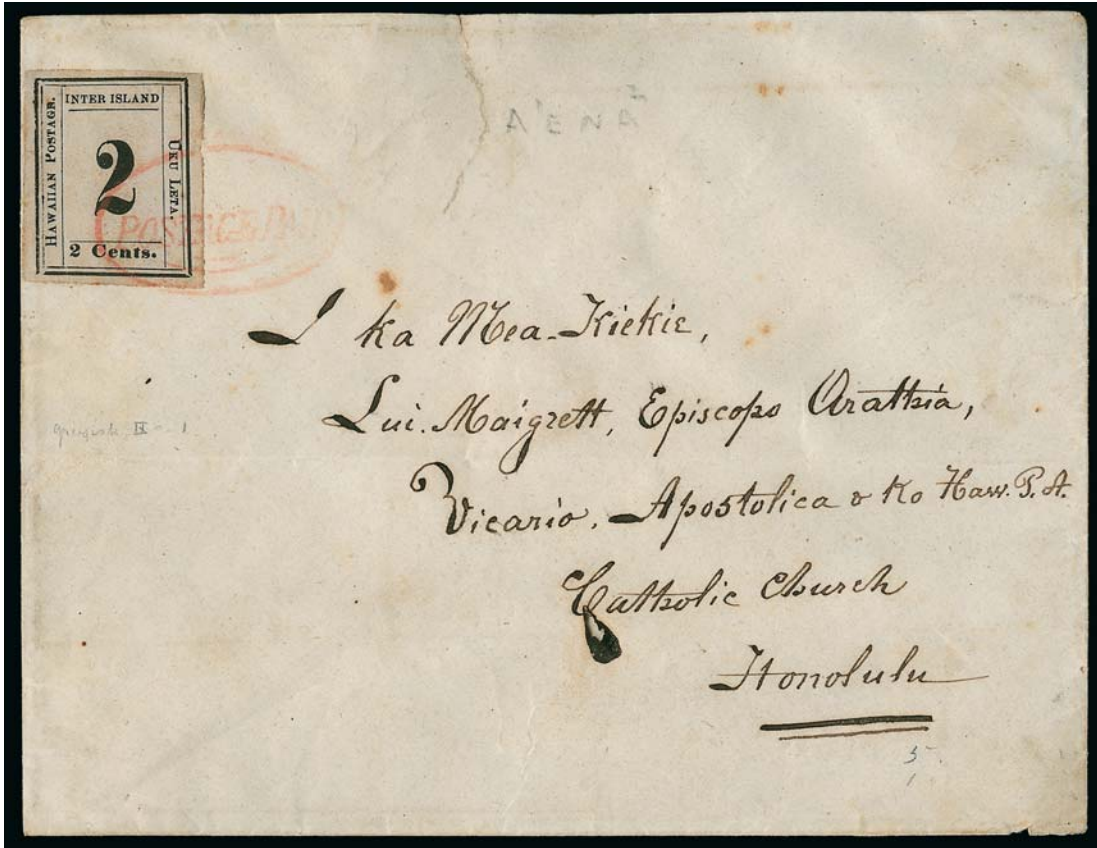 INTER ISLAND
HAWAIIAN POSTAGE.
2
UKU LETA.
2 Cents.
POSTAGE PAID
I ka Mea-Kiekie,
Lui. Maigrett, Episcopo Arathia,
Vicario. Apostolica o Ko Haw. P. A.
Catholic Church
Honolulu
5